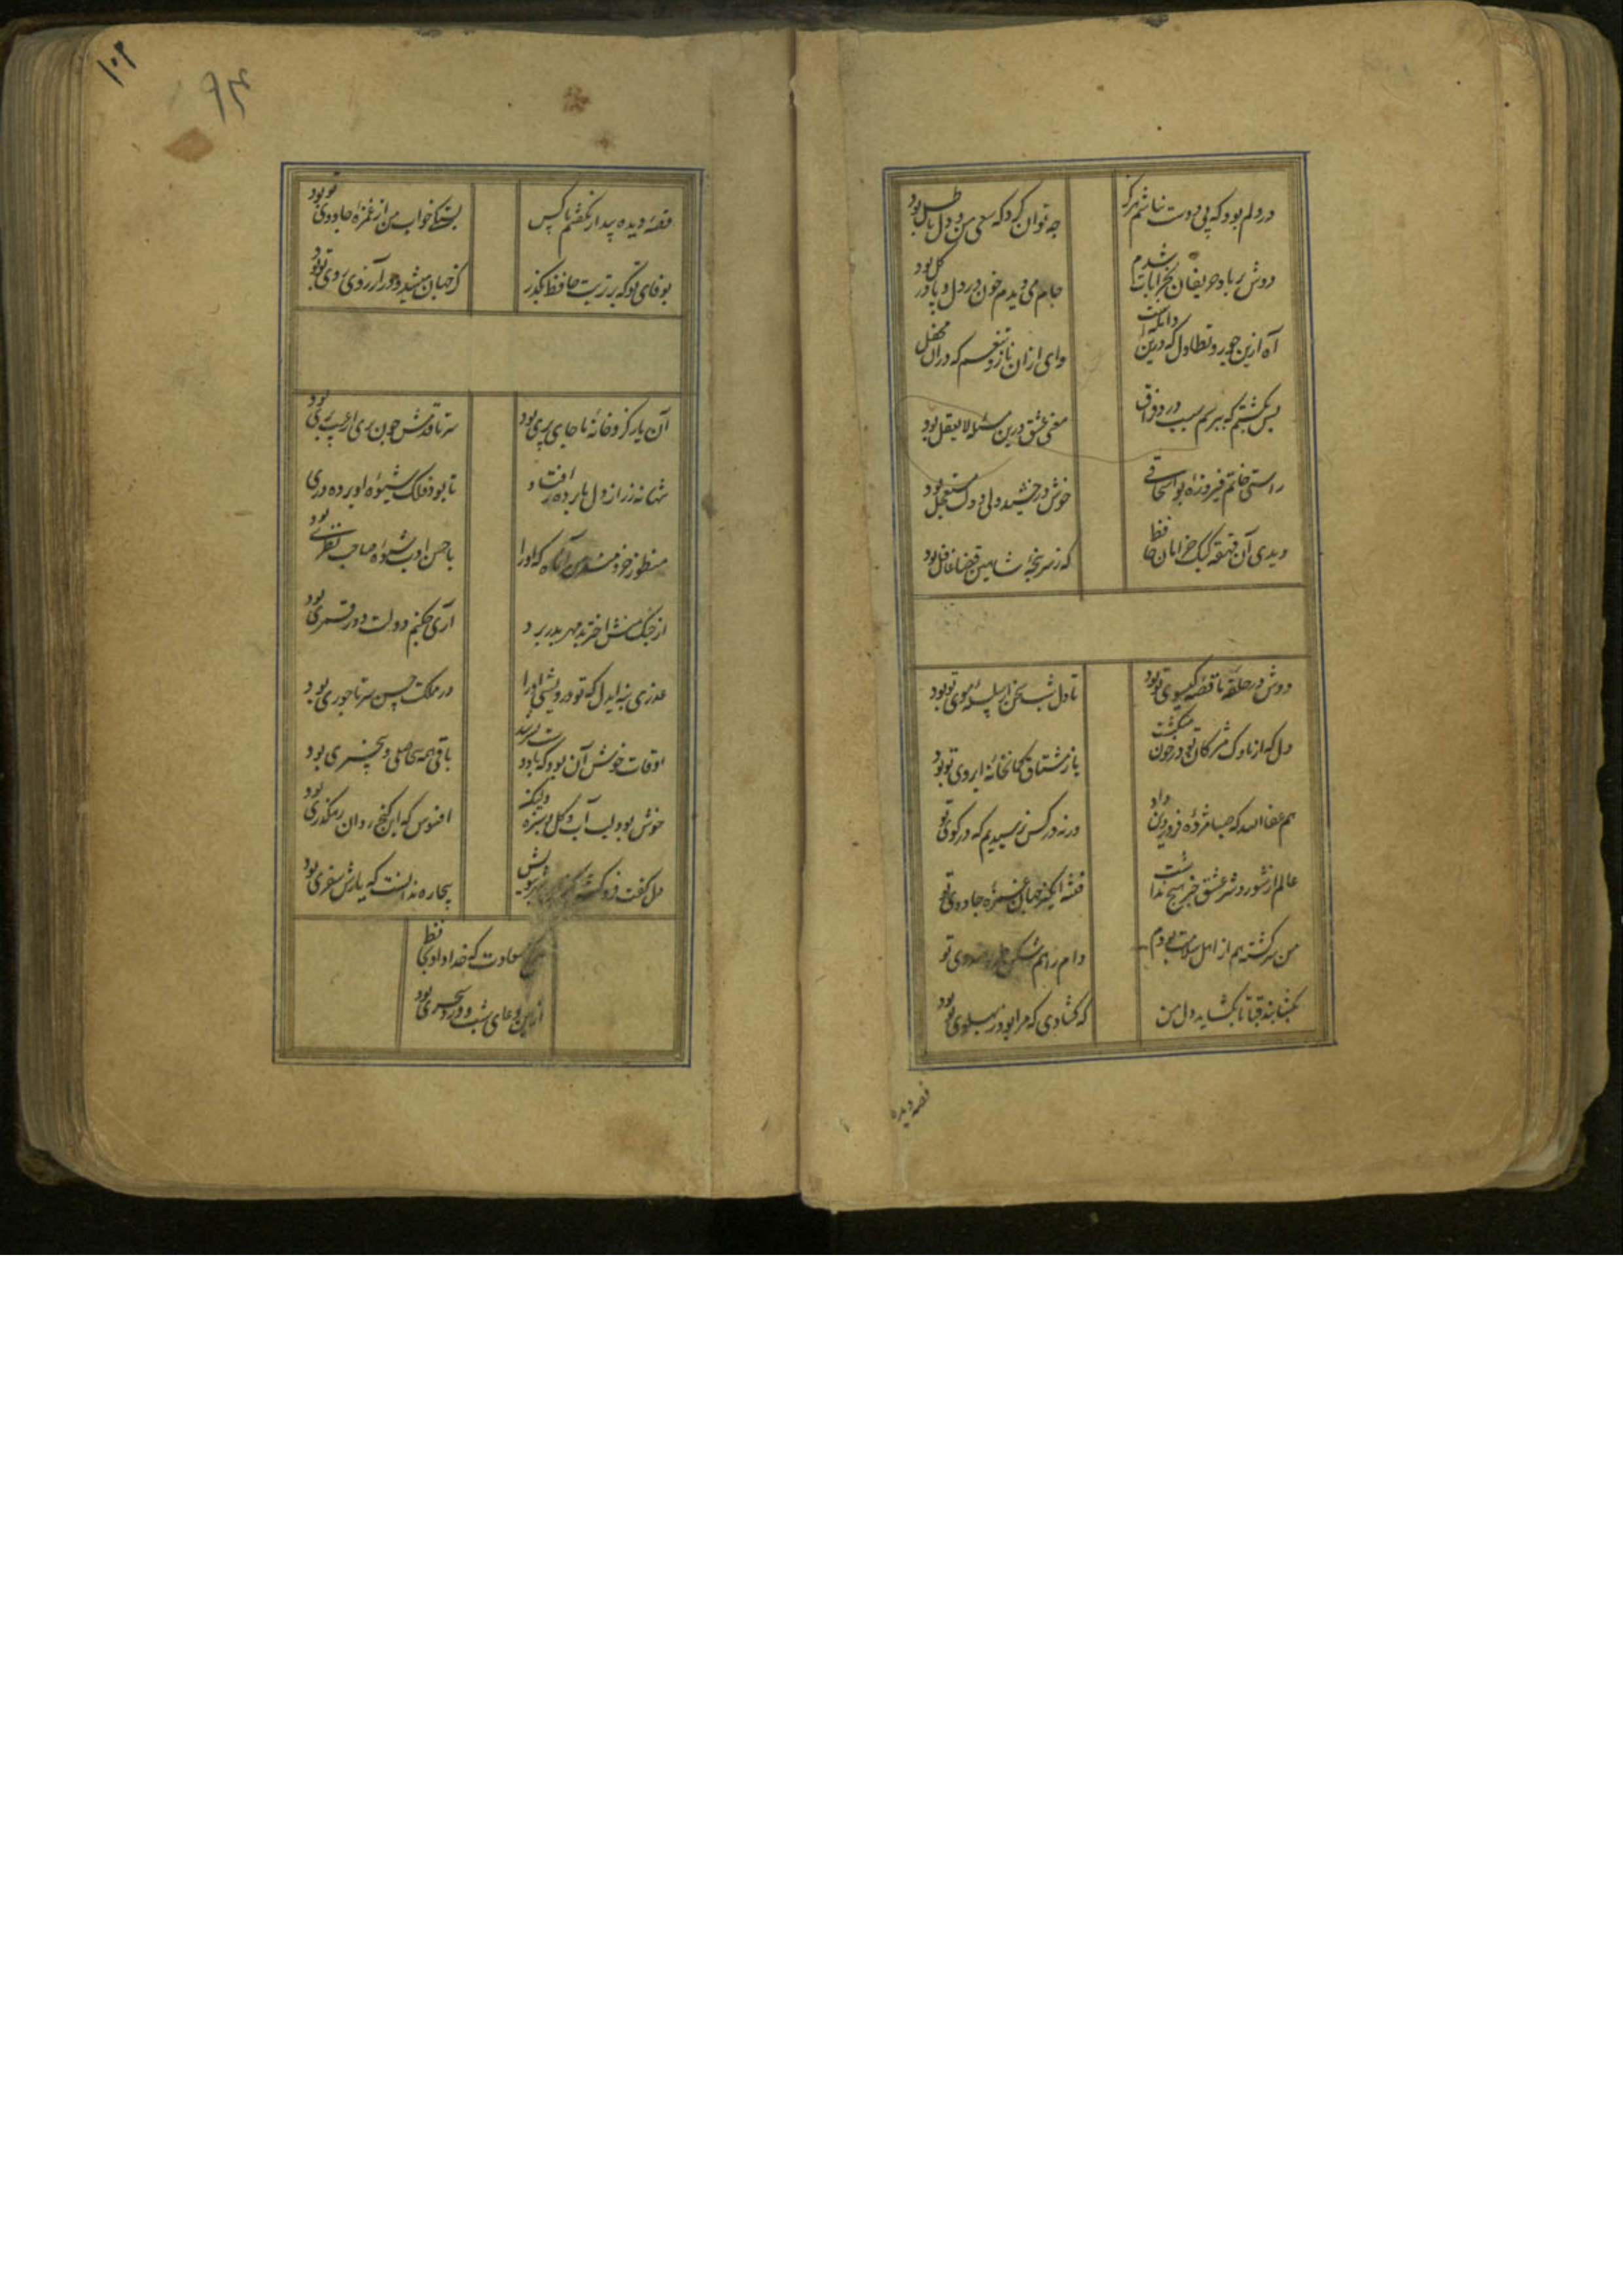 در دلم بود که بی دوست نباشم هرگز
چه توان کرد که سعی من و دل باطل بود
دوش بر یاد حریفان بخرابات شدم
جام می دیدم خون در دل و پا در گل بود
آه ازین جور و تطاول که درین دامگه است
وای ازان ناز و تنعم که دران محفل
بس بگشتم که بپرسم سبب درد فراق
مفتی عشق درین مسئله لایعقل بود
راستی خاتم فیروزه بواسحاقی
خوش درخشید ولی دولت مستعجل بود
دیدی آن قهقهه کبک خرامان حافظ
که ز سرپنجه شاهین قضا غافل بود
دوش در حلقه ما قصه گیسوی تو بود
تا دل شب سخن از سلسله موی تو بود
دل که از ناوک مژگان تو در خون میگشت
باز مشتاق کمانخانه ابروی تو بود
هم عفا الله که صبا مژده از تو داد
ورنه در کس نرسیدیم که در کوی تو
عالم از شور و شر عشق خبر هیچ نداشت
فتنه انگیز جهان غمزه جادوی تو
من سرگشته هم از اهل سلامت بودم
دام راهم شکن طره هندوی تو
بگشا بند قبا تا بگشاید دل من
که گشادی که مرا بود ز پهلوی تو بود
قصه دیده
۱۰۲
۹۴
قصه دیده بیدار نگفتم با کس
بستگی خواب من از غمزه جادوی تو بود
بوفای تو که بر تربت حافظ بگذر
کز جهان میشد و در آرزوی روی تو بود
آن یار کزو خانه ما جای پری بود
سر تا قدمش چون پری از عیب بری بود
تنها نه ز راز دل ما پرده بر افتاد
تا بود فلک شیوه او پرده دری
منظور خردمند من آن ماه که او را
با حسن ادب شیوه صاحب نظری بود
از چنگ منش اختر بدمهر بدر برد
آری چکنم دولت دور قمری بود
عذری بنه ایدل که تو درویشی و او را
در مملکت حسن سر تاجوری بود
اوقات خوش آن بود که با دوست بسر شد
باقی همه بیحاصلی و بیخبری بود
خوش بود لب آب و گل و سبزه ولیکن
افسوس که آن گنج روان رهگذری بود
دل گفت فروکش کنم این شهر ببویش
بیچاره ندانست که یارش سفری بود
هر گنج سعادت که خدا داد بحافظ
از یمن دعای شب و ورد سحری بود